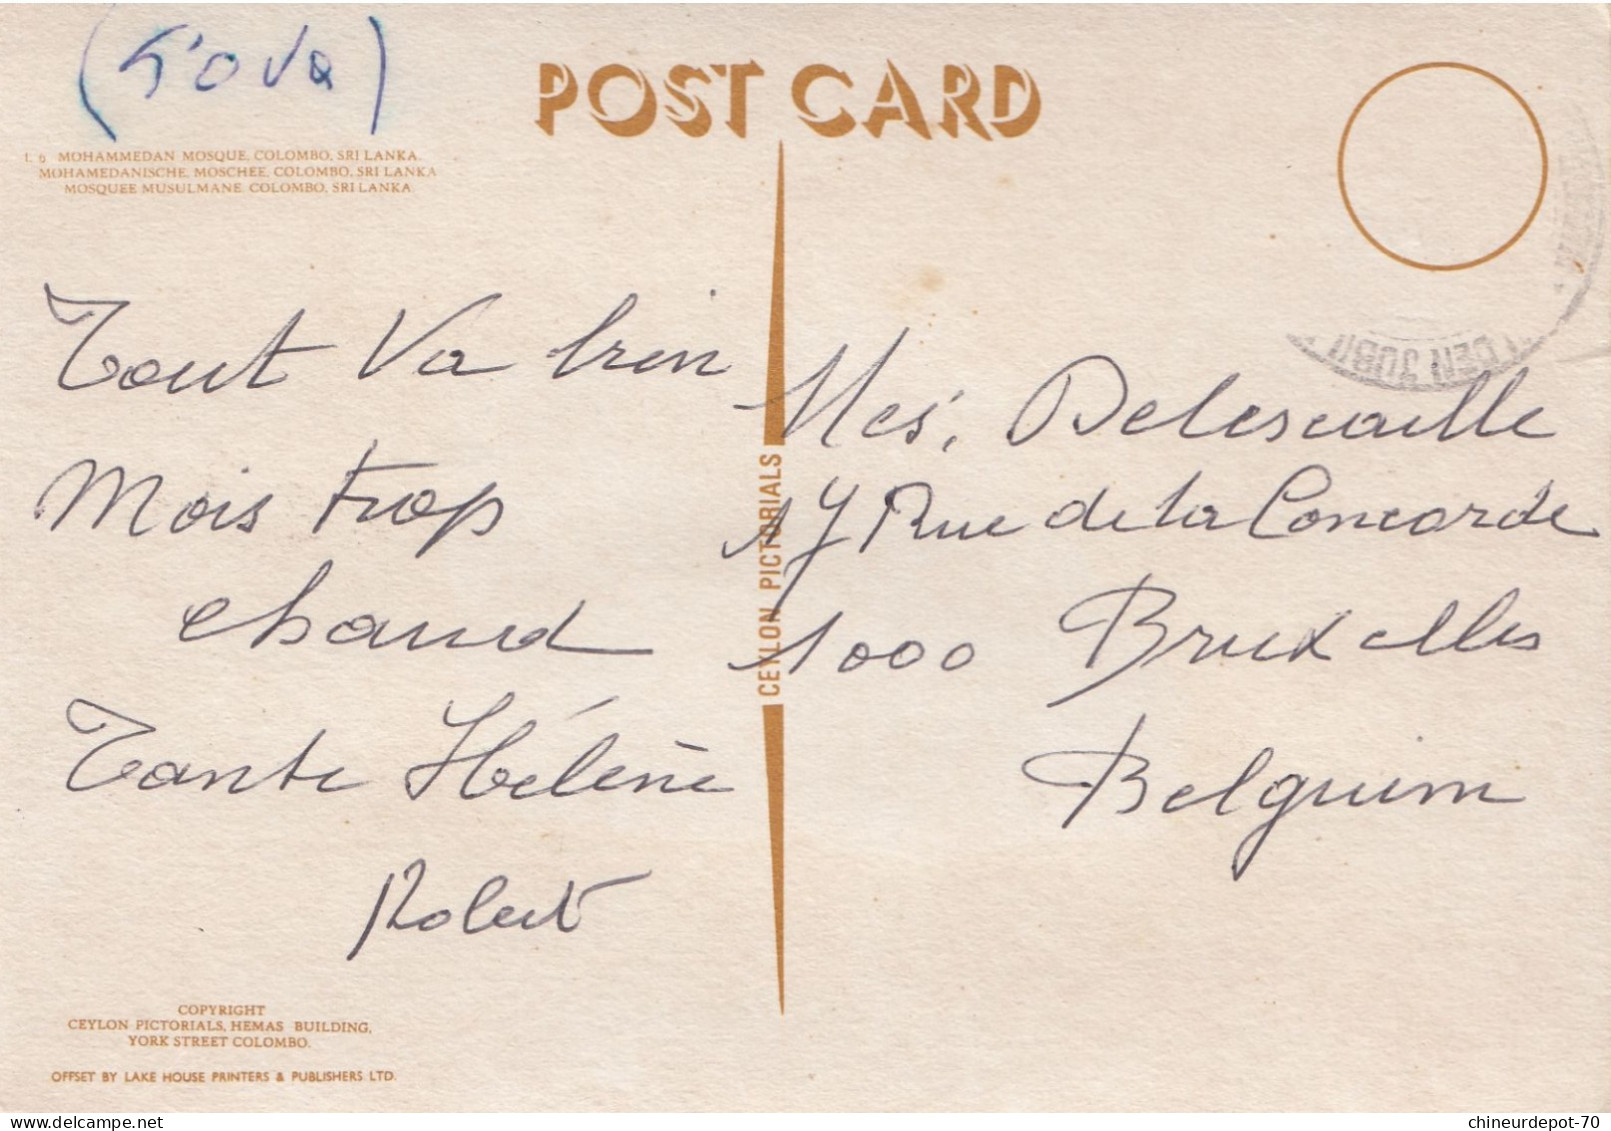 POST CARD
MOHAMMEDAN MOSQUE, COLOMBO, SRI LANKA.
MOHAMEDANISCHE, MOSCHEE, COLOMBO, SRI LANKA
MOSQUEE MUSULMANE, COLOMBO, SRI LANKA
Tout Va bien
Mois trop
chaud
Tante Hélène
Robert
CEYLON PICTORIALS
Mes. Delescaille
17 Rue de la Concorde
1000 Bruxelles
Belguim
DEN JUBI
COPYRIGHT
CEYLON PICTORIALS, HEMAS BUILDING,
YORK STREET COLOMBO.
OFFSET BY LAKE HOUSE PRINTERS & PUBLISHERS LTD.
chineurdepot-70